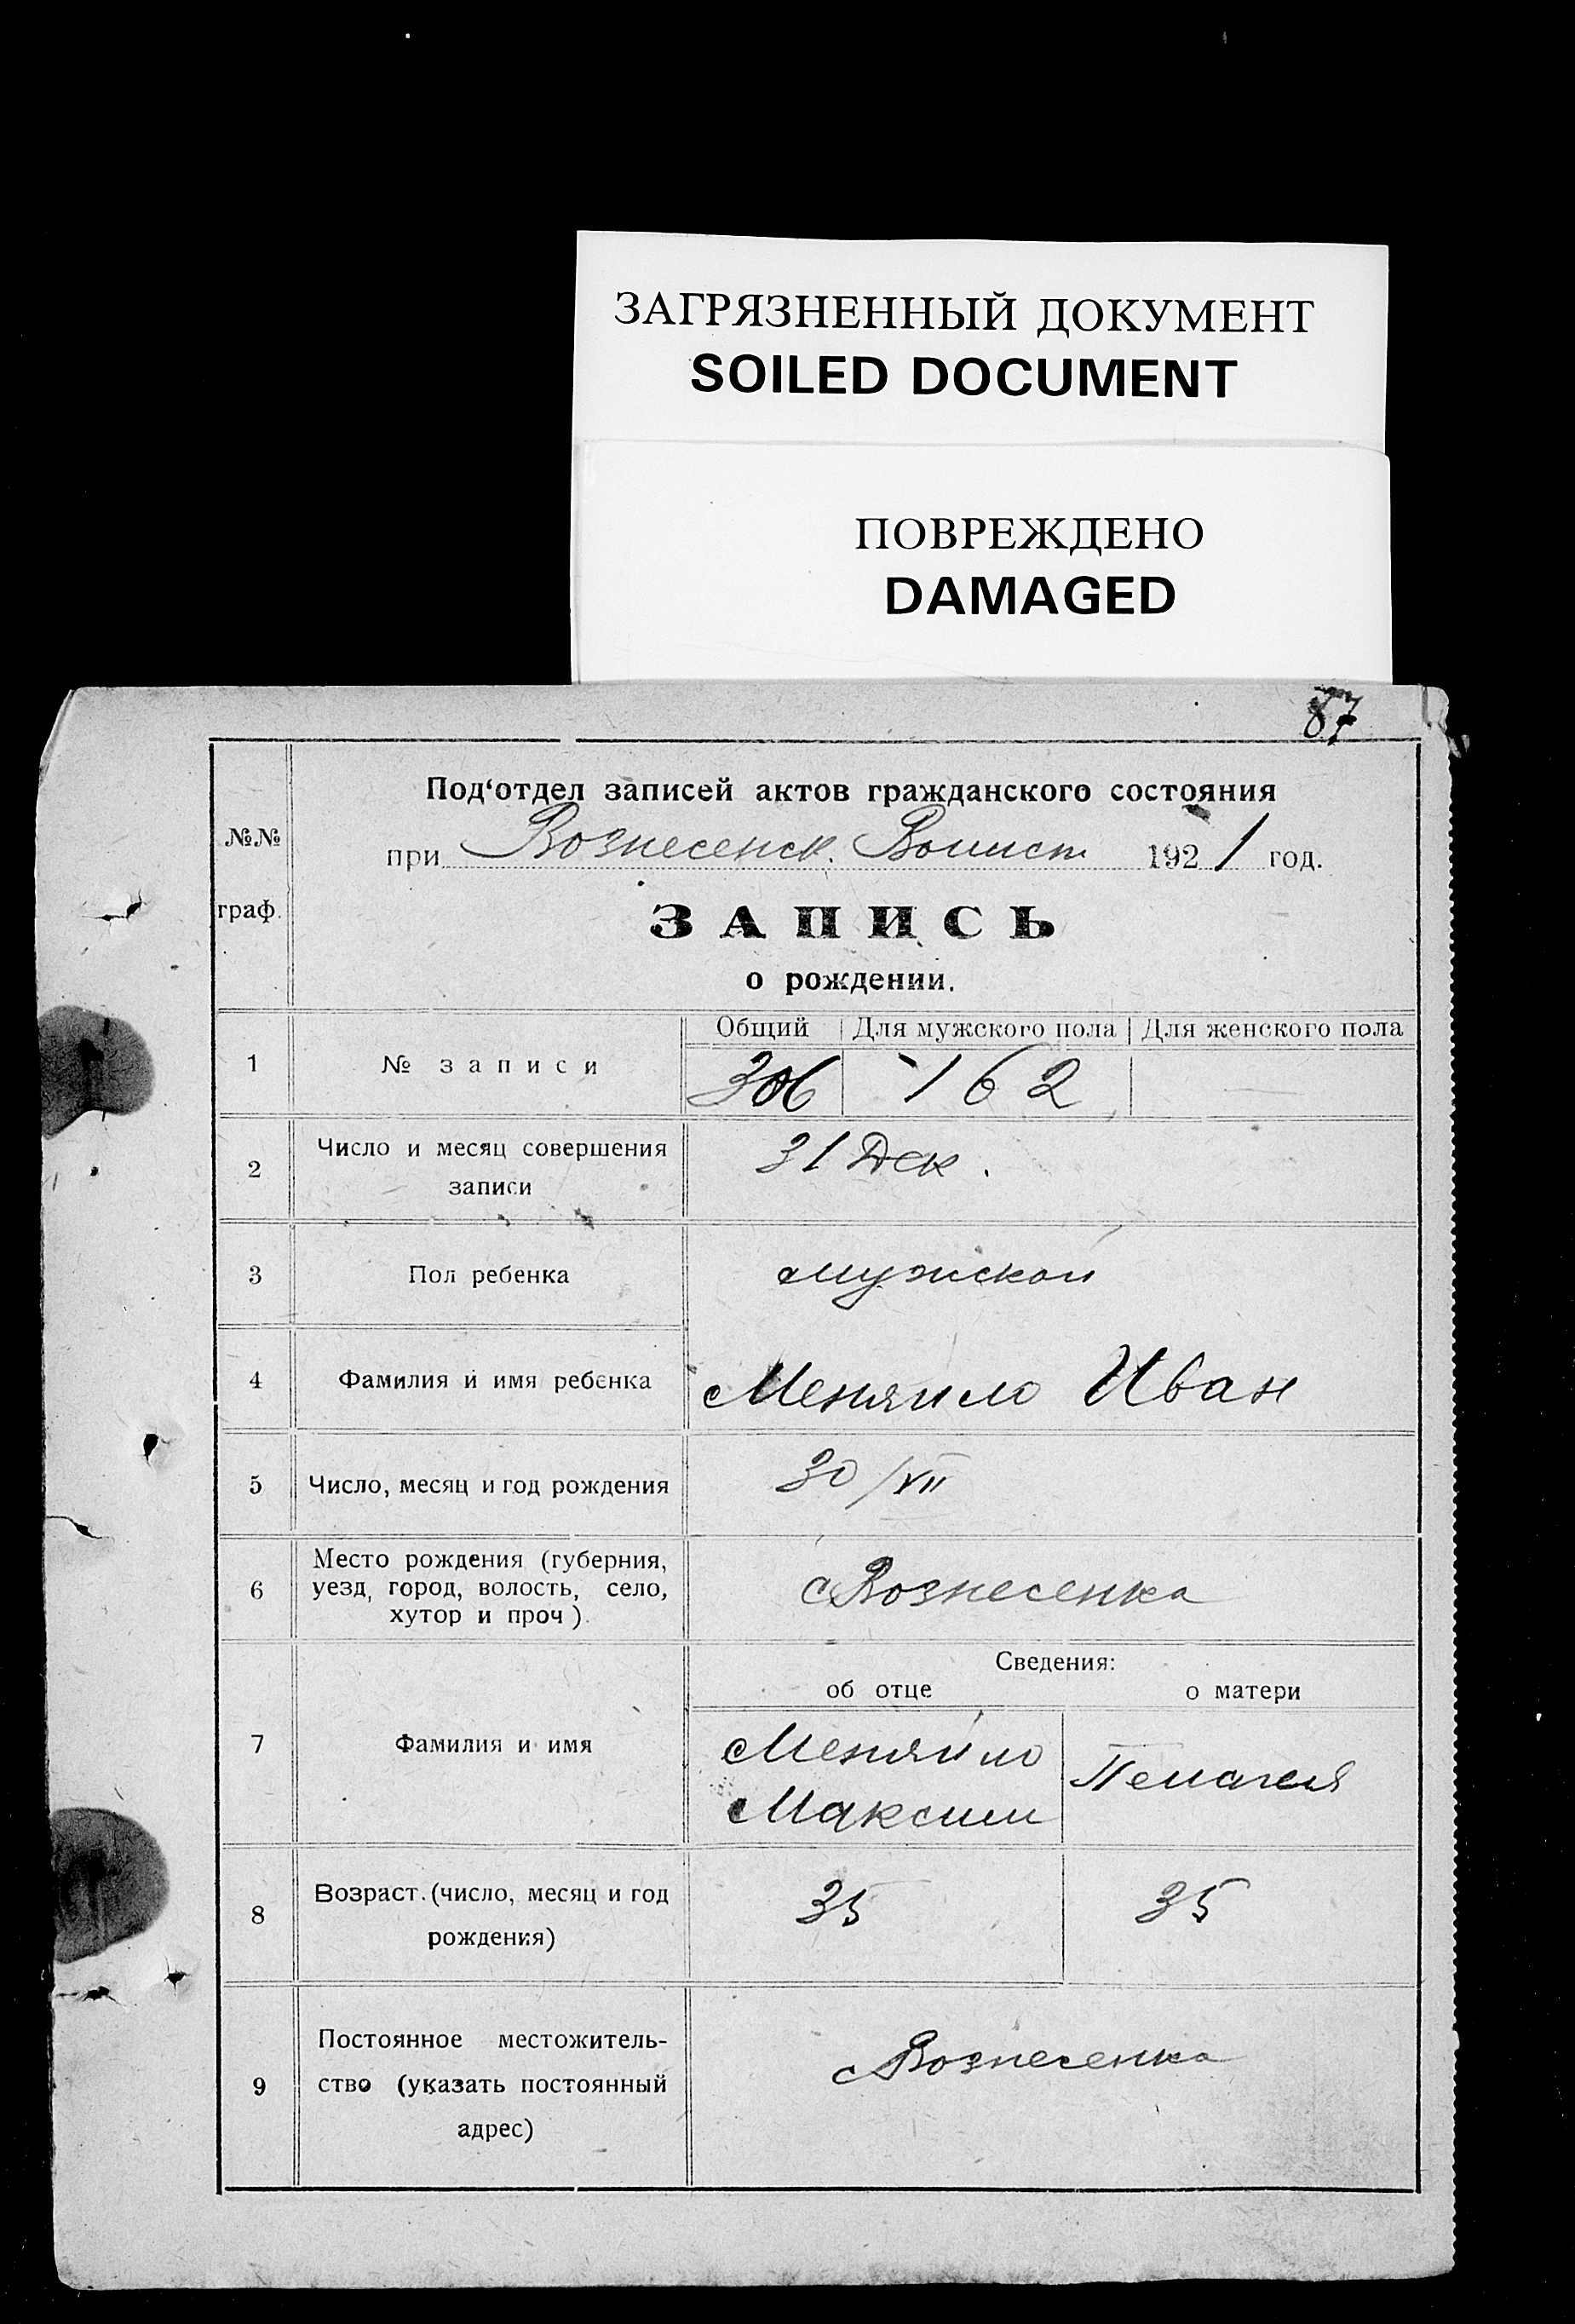 ЗАГРЯЗНЕННЫЙ ДОКУМЕНТ
SOILED DOCUMENT
ПОВРЕЖДЕНО
DAMAGED
87
Под‘отдел записей актов гражданского состояния
№№
при Вознесенск. Волисп 1921 год.
граф.
ЗАПИСЬ
о рождении.
Общий Для мужского пола Для женского пола
1 № записи 306 162
Число и месяц совершения
2 31 Дек.
записи
3 Пол ребенка мужской
4 Фамилия и имя ребенка Меняйло Иван
5 Число, месяц и год рождения 30/VII
Место рождения (губерния,
6 уезд, город, волость, село, с Вознесенка
хутор и проч.)
Сведения:
об отце о матери
7 Фамилия и имя Меняйло Пелагея
Максим
Возраст. (число, месяц и год
8 35 35
рождения)
Постоянное местожитель-
9 ство (указать постоянный с Вознесенка
адрес)